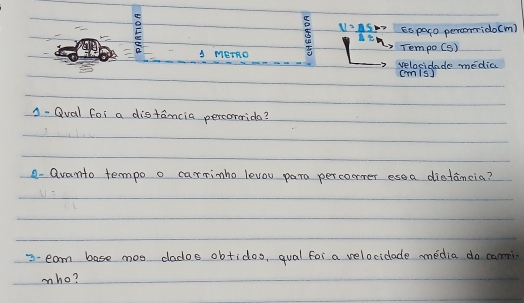 PARTIDA
1 METRO
CHEGADA
V = ΔS → Espaço percorrido (m)
Δt → Tempo (s)
velocidade média (m/s)
1- Qual foi a distância percorrida?
2- Quanto tempo o carrinho levou para percorrer essa distância?
3- com base nos dados obtidos, qual foi a velocidade média do carri-
nho?